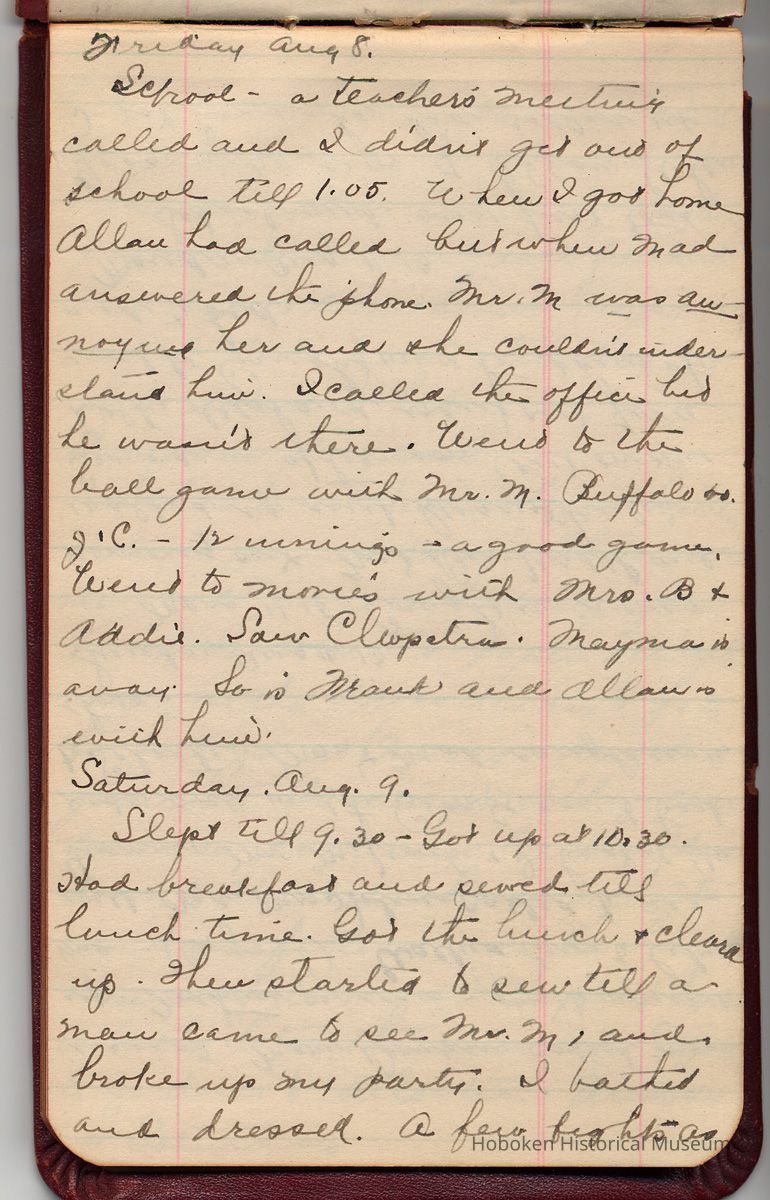 Friday Aug 8.
School - a teacher's meeting
called and I didn't get out of
school till 1.05. When I got home
Allan had called but when Mad
answered the phone. Mr. M was an-
noying her and she couldn't under-
stand him. I called the office but
he wasn't there. Went to the
ball game with Mr. M. Buffalo vs.
J.C. - 12 innings - a good game.
Went to movies with Mrs. B &
Addie. Saw Cleopatra. Mayma is
away. So is Frank and Allan is
with him.
Saturday. Aug. 9.
Slept till 9.30 - Got up at 10.30.
Had breakfast and sewed till
lunch time. Got the lunch & cleared
up. Then started to sew till a
man came to see Mr. M, and
broke up my party. I bathed
and dressed. A few fights as
Hoboken Historical Museum